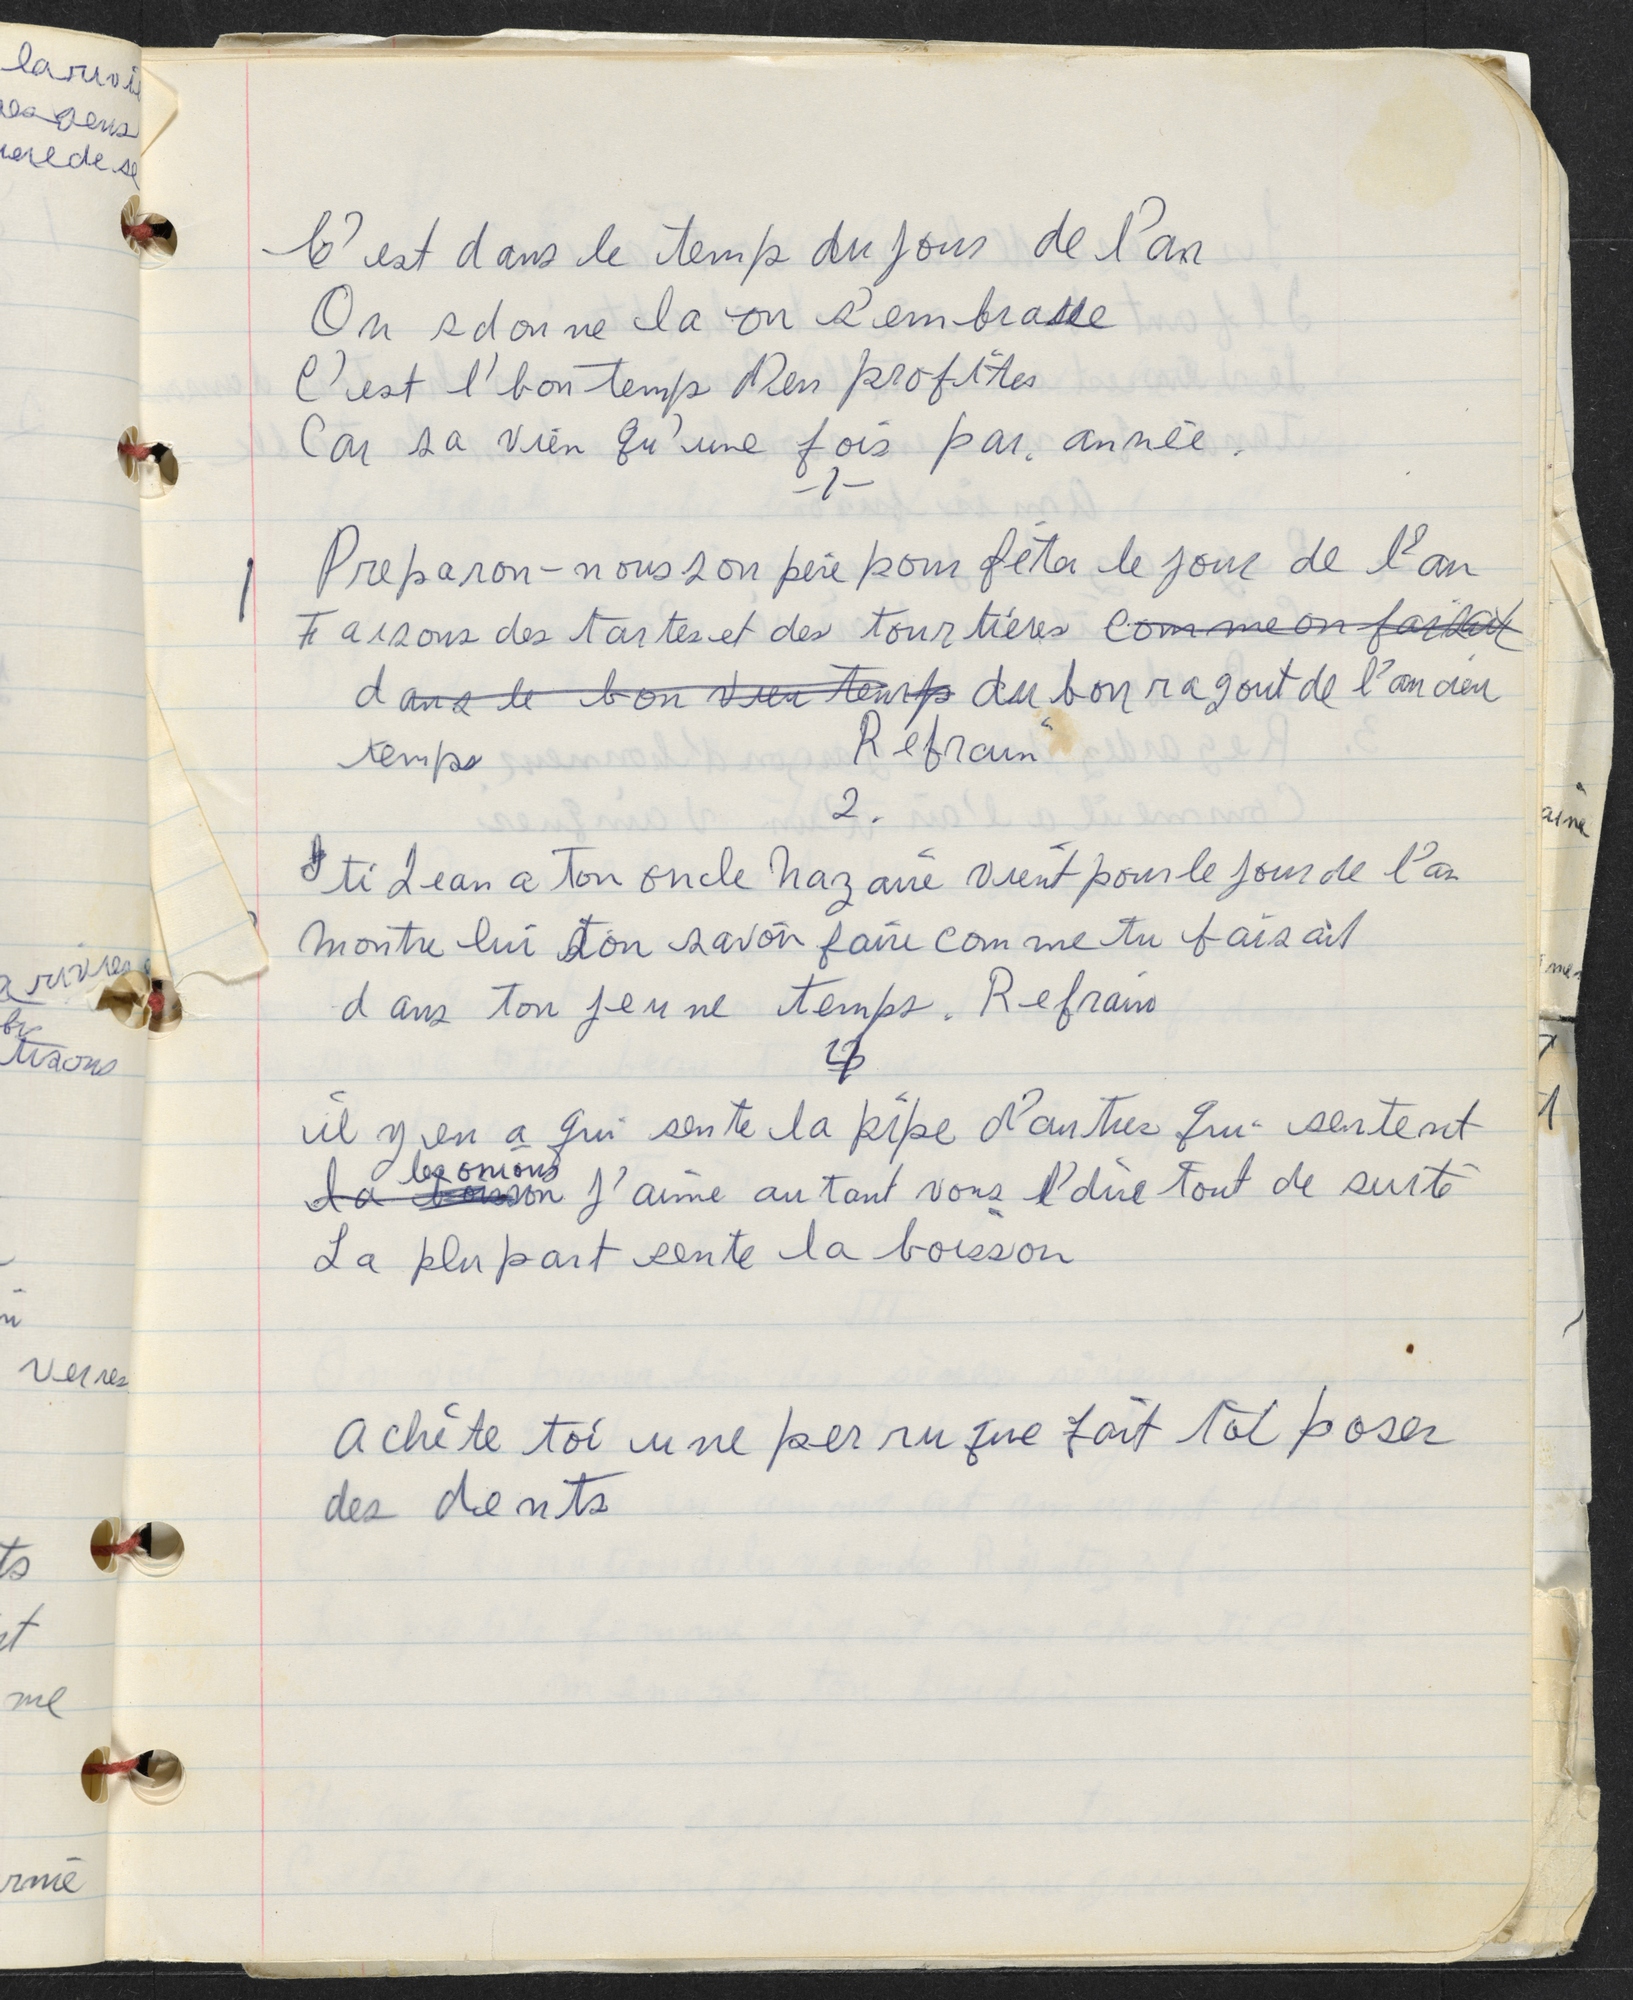 C'est dans le temp du jour de l'an
On sdonne la on s'embrasse
C'est l'bon temp D'en profiter
Car sa vien qu'une fois par. année.
-1-
1 Preparon-nous son père pour fêter le jour de l'an
Faisons des tartes et des tourtières comme on faisait
dans le bon vieu temps du bon ragout de l'ancien
temps Refrain
2.
ti Jean a ton oncle Nazaire vient pour le jour de l'an
Montre lui ton savoir faire comme tu faisait
dans ton jeune temps. Refrain
il y en a qui sente la pipe d'autres qui sentent
les onions
la boisson j'aime autant vous l'dire tout de suite
La plupart sente la boisson
Achète toi une perruque fait toi poser
des dents
la rivi
gens
de se
a rivière
tisons
verres
ts
st
me
rmé
ainé
mes